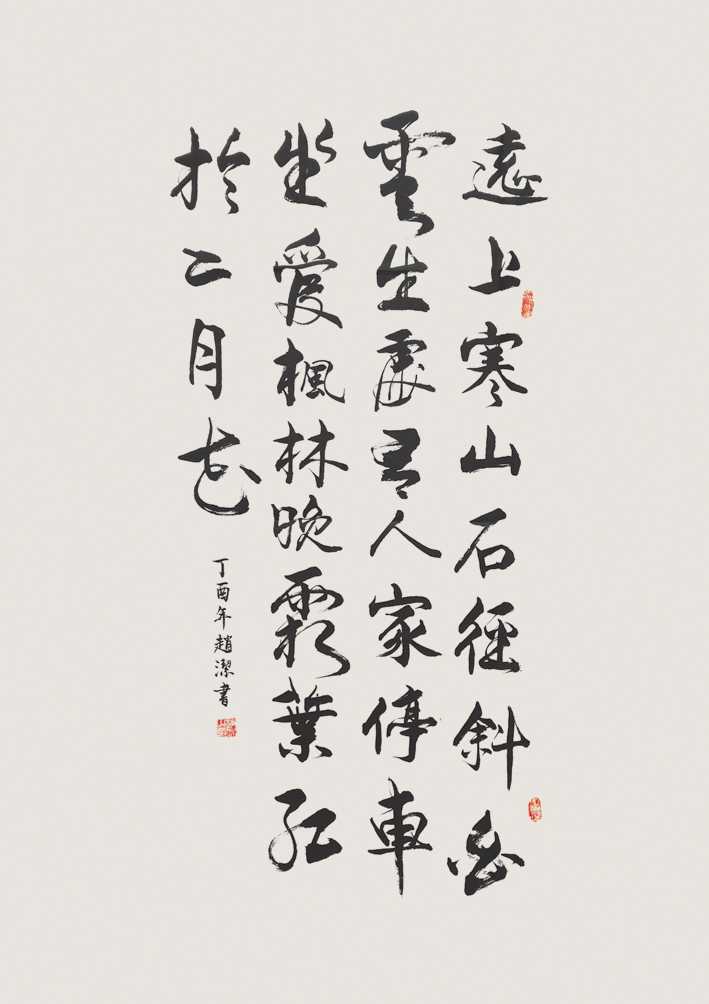 遠上寒山石徑斜白
雲生處有人家停車
坐愛楓林晚霜葉紅
於二月花
丁酉年趙潔書